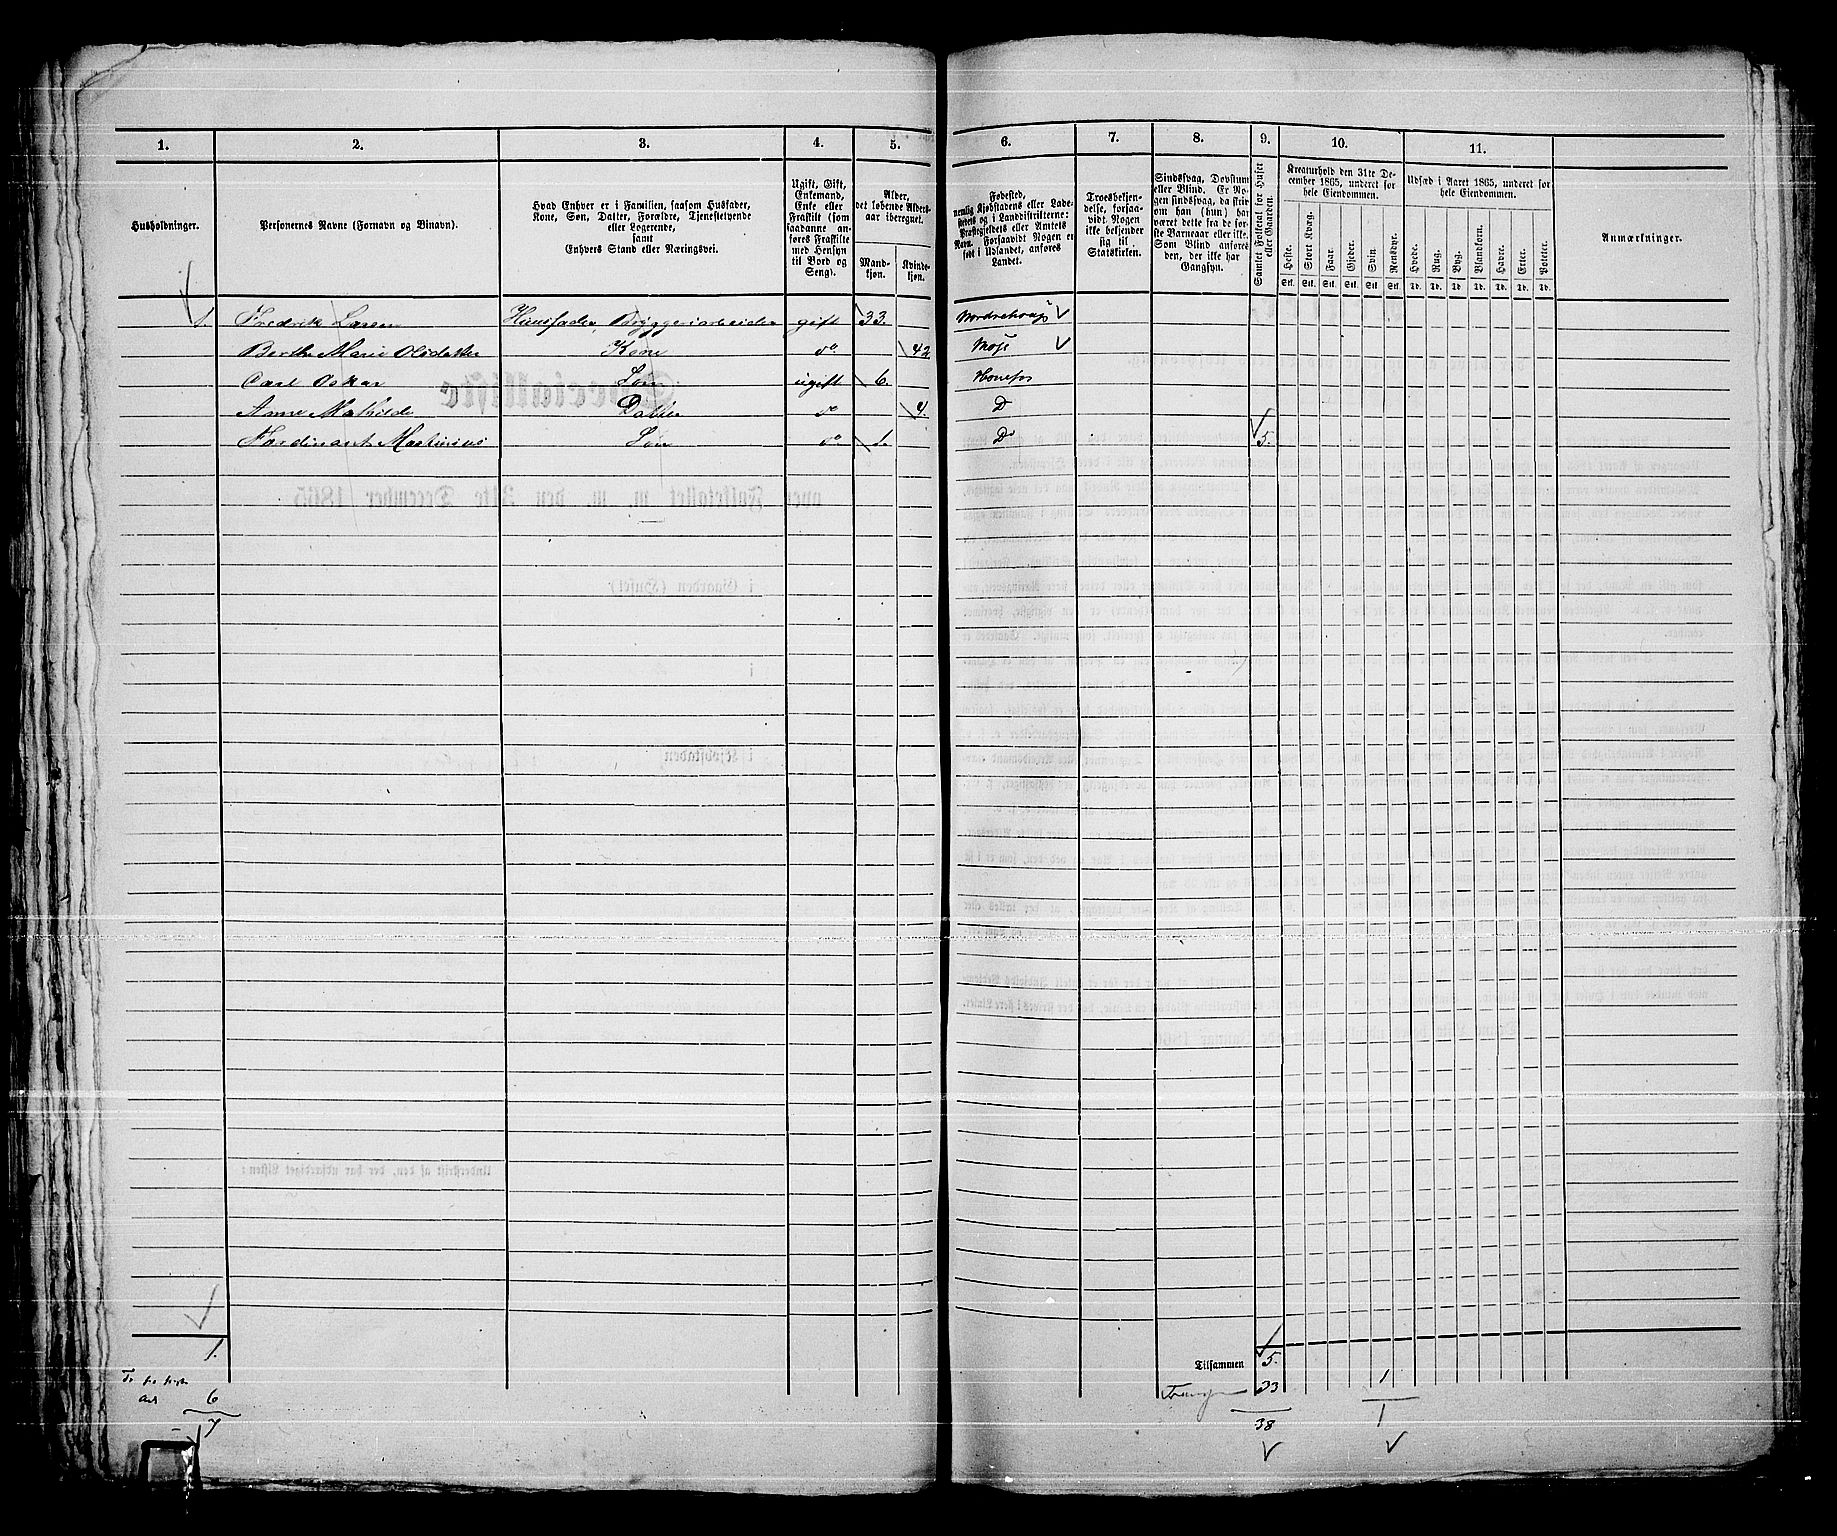 1. 2. 3. 4. 5. 6. 7. 8. 9. 10. 11.
Husholdninger.
Personernes Navne (Fornavn og Binavn).
Hvad Enhver er i Familien, saasom Husfader,
Kone, Søn, Datter, Forældre, Tjenestetyende
eller Logerende,
samt
Enhvers Stand eller Næringsvei.
Ugift, Gift,
Enkemand,
Enke eller
Fraskilt (som
saadanne an-
føres Fraskilte
med Hensyn
til Bord og
Seng).
Alder,
det løbende Alders-
aar iberegnet.
Mand-
kjøn.
Kvinde-
kjøn.
Fødested,
nemlig Kjøbstadens eller Lade-
stedets og i Landdistrikterne:
Præstegjeldets eller Amtets
Navn. Forsaavidt Nogen er
født i Udlandet, anføres
Landet.
Troesbekjen-
delse, forsaa-
vidt Nogen
ikke bekjender
sig til
Statskirken.
Sindssvag, Døvstum
eller Blind. Er No-
gen sindssvag, da skrives
om han (hun) har
været dette fra de før-
ste Barneaar eller ikke.
Som Blind anføres
den, der ikke har
Gangsyn.
Samlet Folketal for Huset
eller Gaarden.
Kreaturhold den 31te De-
cember 1865, underet for
hele Eiendommen.
Heste. Stort Kvæg. Faar. Gjeder. Svin. Rensdyr.
Stk. Stk. Stk. Stk. Stk. Stk.
Udsæd i Aaret 1865, underet for
hele Eiendommen.
Hvede. Rug. Byg. Blandkorn. Havre. Erter. Poteter.
Td. Td. Td. Td. Td. Td. Td.
Anmærkninger.
1. Fredrik Larsen Huusfader, Bryggeriarbeider gift 33. Nordrehoug
Berthe Marie Olsdatter Kone do 42 Moss
Carl Oskar Søn ugift 6. Hønefos
Anne Mathilde Datter do 4. D
Ferdinant Martinius Søn do 1. Do 5.
1.
6
7
Tilsammen 5.
33 1
38 1